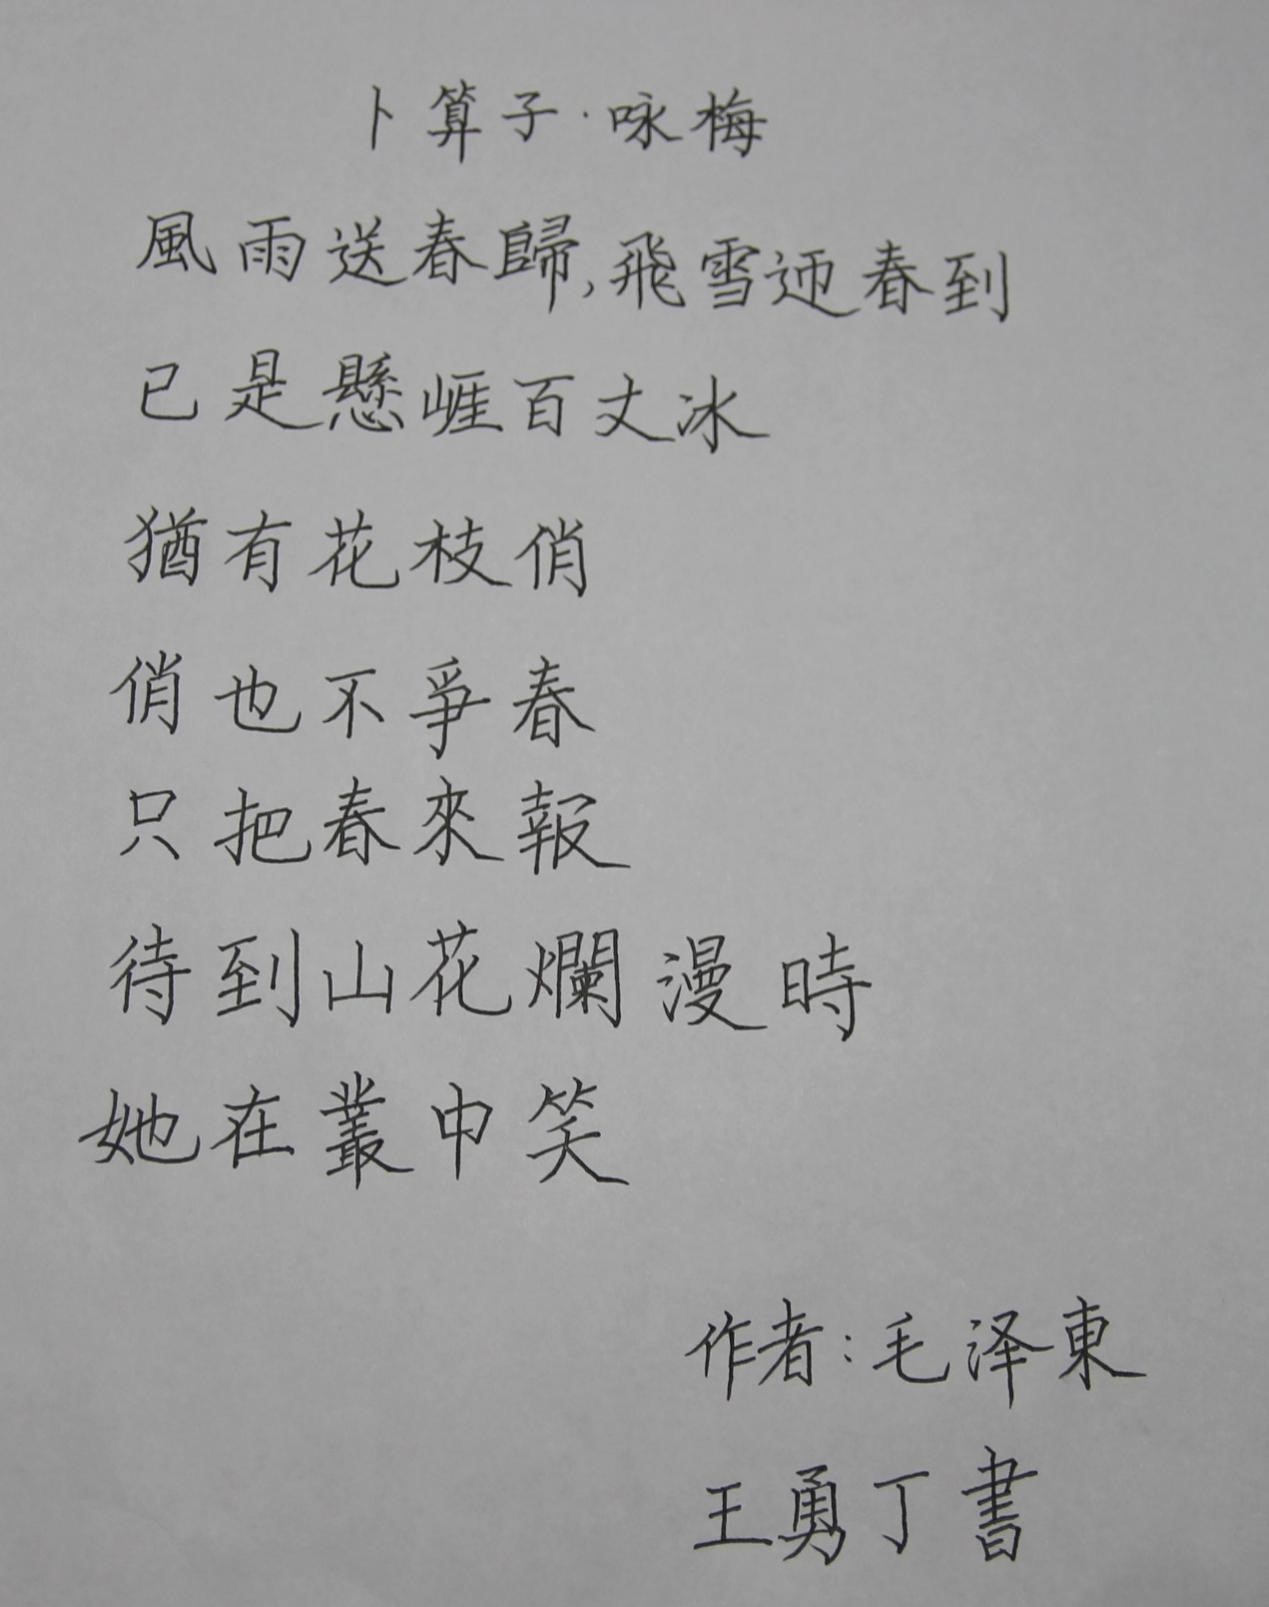 卜算子·咏梅
風雨送春歸,飛雪迎春到
已是懸崕百丈冰
猶有花枝俏
俏也不爭春
只把春來報
待到山花爛漫時
她在叢中笑
作者:毛泽東
王勇丁書